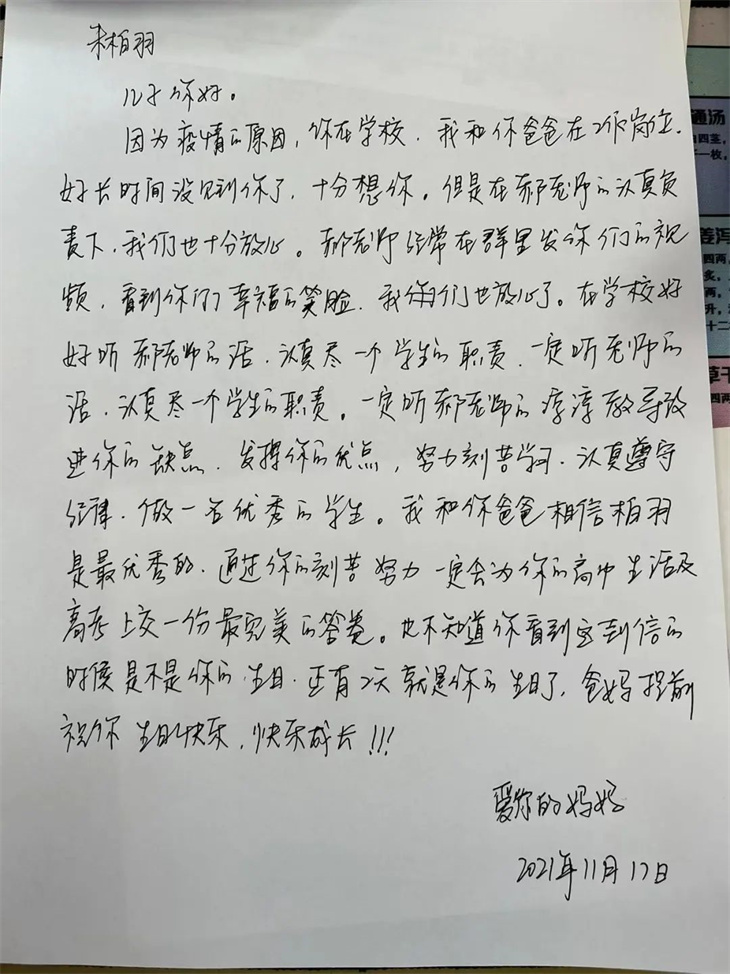 朱柏羽
儿子你好。
因为疫情的原因,你在学校,我和你爸爸在工作岗位,
好长时间没见到你了,十分想你。但是在郝老师的认真负
责下,我们也十分放心。郝老师经常在群里发你们的视
频,看到你们幸福的笑脸,我们也放心了。在学校好
好听郝老师的话,认真尽一个学生的职责,一定听老师的
话,认真尽一个学生的职责。一定听郝老师的谆谆教导改
进你的缺点,发挥你的优点,努力刻苦学习,认真遵守
纪律,做一名优秀的学生。我和你爸爸相信柏羽
是最优秀的,通过你的刻苦努力一定会为你的高中生活及
高考上交一份最完美的答卷。也不知道你看到这封信的
时候是不是你的生日,还有2天就是你的生日了,爸妈提前
祝你生日快乐,快乐成长!!!
爱你的妈妈
2021年11月17日
通汤
四两,
一枚,
姜泻
四两
炙,
两,
升,
十二
草干
四两